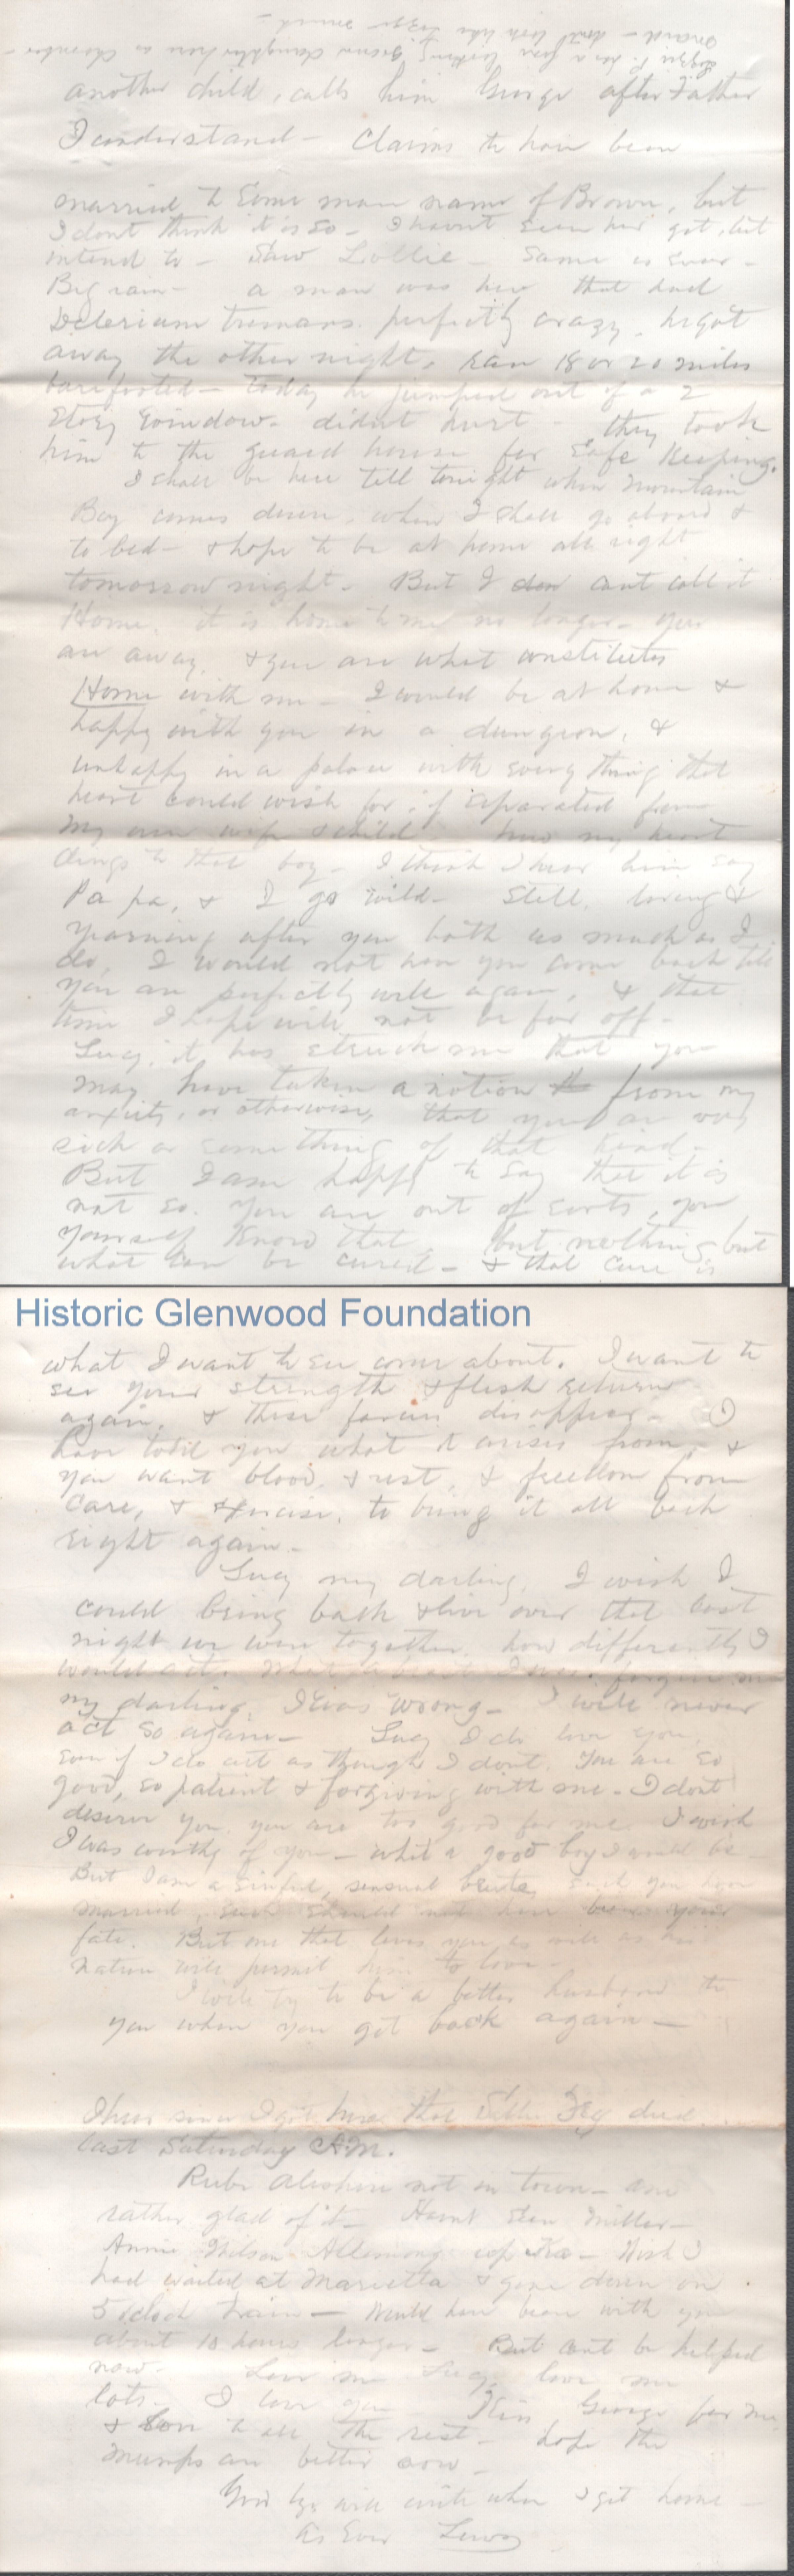 Lizzie P. has a fine looking
don't look like Lizzie
another child, calls him George after Father
I understand - Claims to have been
married to some man name of Brown, but
I dont think it is so - I havent seen her yet, but
intend to - Saw Lollie - Same as ever -
Big rain - a man was here that had
Delerium tremans. perfectly crazy. he got
away the other night. ran 18 or 20 miles
barefooted - today he jumped out of a 2
story window - didnt hurt - they took
him to the guard house for safe keeping.
I shall be here till tonight when Mountain
Boy comes down, when I shall go aboard &
to bed - & hope to be at home all right
tomorrow night - But I cant call it
Home, it is home to me no longer - you
are away, & you are what constitutes
Home with me - I would be at home &
happy with you in a dungeon, &
unhappy in a palace with every thing that
heart could wish for, if separated from
my own wife & child how my heart
clings to that boy - I think I hear him say
Pa pa, & I go wild - Still, loving &
yearning after you both as much as I
do, I would not have you come back till
you are perfectly well again, & that
time I hope will not be far off -
Lucy, it has struck me that you
may have taken a notion from my
anxiety, or otherwise, that you are very
sick or something of that kind -
But I am happy to say that it is
not so. You are out of sorts, you
yourself know that but nothing but
what can be cured - & that cure is
Historic Glenwood Foundation
what I want to see come about. I want to
see your strength & flesh return
again, & these disappear - I
have told you what it arises from, &
you want blood, & rest, & freedom from
care, & exercise, to bring it all back
right again -
Lucy my darling, I wish I
could bring back & live over that last
night we were together, how differently I
would act. What a beast I was. forgive me
my darling, I was wrong - I will never
act so again - Lucy I do love you,
even if I do act as though I dont. You are so
good, so patient & forgiving with me - I dont
deserve you, you are too good for me I wish
I was worthy of you - what a good boy I would be -
But I am a sinful, sensual brute, such you have
married, such should not have been your
fate. But one that loves you as well as his
nature will permit him to love -
I will try to be a better husband to
you when you get back again -
I hear since I got here that died
last Saturday A.M.
Rube not in town - am
rather glad of it - Havnt seen Miller -
Annie Wilson - Wish I
had waited at Marietta & gone down on
5 oclock train - Would have been with you
about 10 hours longer - But cant be helped
now - Love me Lucy, love me
lots - I love you - Kiss George for me
& love to all the rest - hope the
mumps are better now -
Good bye will write when I get home -
As Ever Leroy